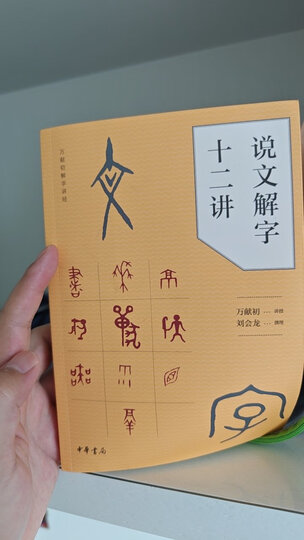 说文解字
十二讲
万献初解字讲经
万献初 … 讲授
刘会龙 … 撰理
中華書局